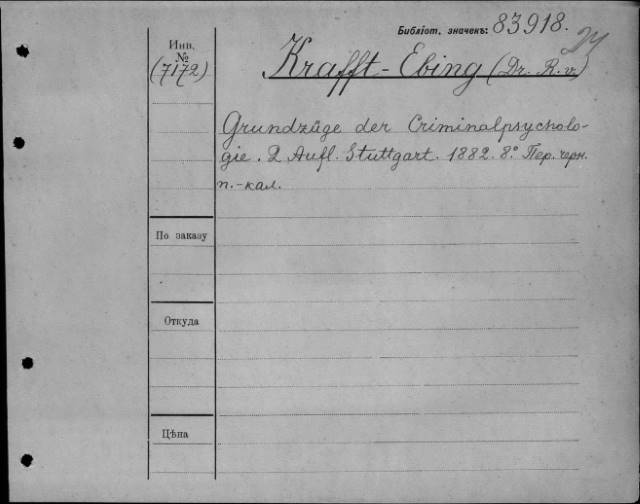 Библіот. значекъ: 83918.
Инв.
№
(7172)
Krafft-Ebing (Dr. R. v.)
Grundzüge der Criminalpsycholo-
gie. 2 Aufl. Stuttgart. 1882. 8.° Пер. черн.
п.-кал.
По заказу
Откуда
Цѣна